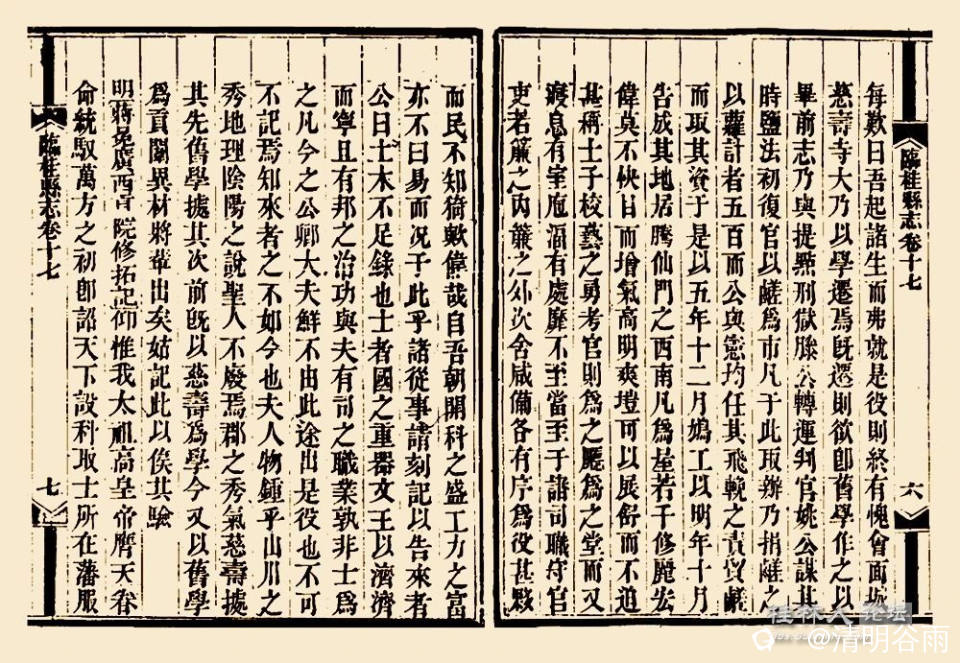 每歎曰吾起諸生而弗就是役則終有愧會面城
慈壽寺大乃以學遷焉旣遷則欲卽舊學作之以
畢前志乃與提㸃刑獄滕公轉運判官姚公謀其
時鹽法初復官以鹺爲市凡于此取辦乃捐鹺之
以蘿計者五百而公與憲均任其飛輓之責貿鹺
而取其資于是以五年十二月鳩工以明年十月
告成其地居騰仙門之西南凡爲屋若干修麗宏
偉莫不快目而增氣高明爽塏可以展舒而不迫
甚稱士子校藝之勇考官則爲之廳爲之堂而又
寢息有室庖湢有處靡不至當至于諸司職守官
吏若簾之內簾之外次舍咸備各有序爲役甚夥
臨桂縣志卷十七
六
而民不知猗歟偉哉自吾朝開科之盛工力之富
亦不曰易而况于此乎諸從事請刻記以告來者
公曰土木不足錄也士者國之重器文王以濟濟
而寧且有邦之治功與夫有司之職業孰非士爲
之凡今之公卿大夫鮮不由此途出是役也不可
不記焉知來者之不如今也夫人物鍾乎山川之
秀地理陰陽之說聖人不廢焉郡之秀氣慈壽據
其先舊學據其次前旣以慈壽爲學今又以舊學
爲貢闈異材將輩出矣姑記此以俟其驗
明蔣冕廣西貢院修拓記仰惟我太祖高皇帝膺天眷
命統馭萬方之初卽詔天下設科取士所在藩服
臨桂縣志卷十七
七
桂林人论坛
@清明谷雨